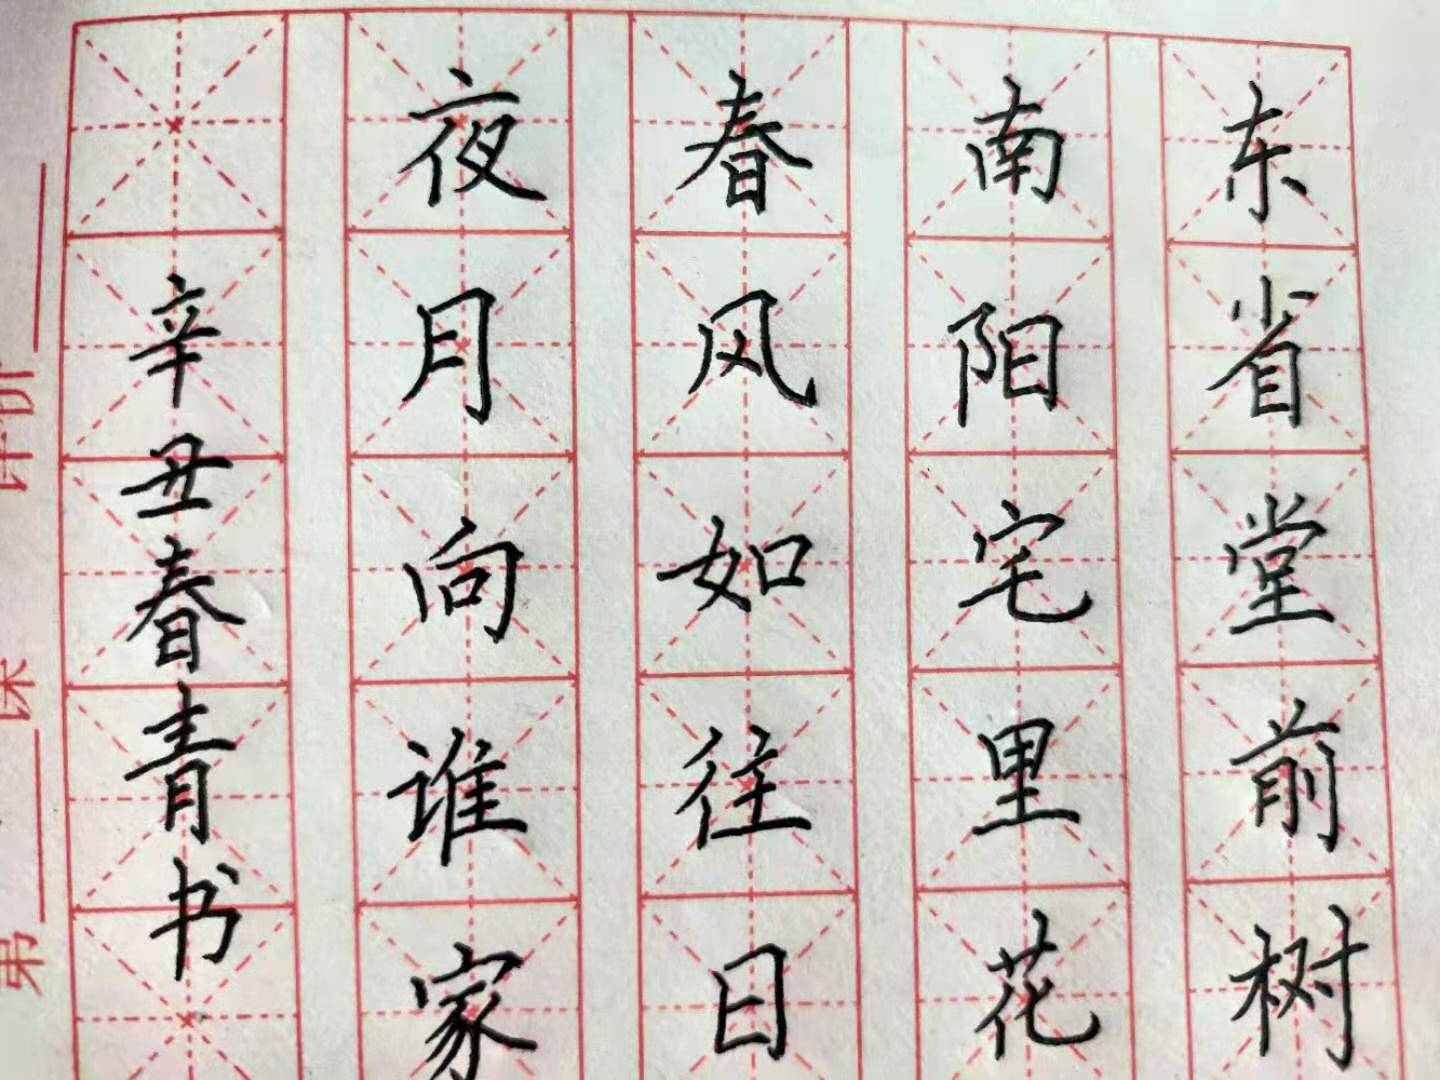 东省堂前树
南阳宅里花
春风如往日
夜月向谁家
辛丑春青书
评价
第 课